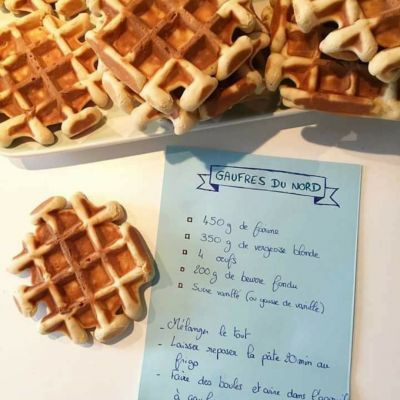 GAUFRES DU NORD
450 g de farine
350 g de vergeoise blonde
4 œufs
200 g de beurre fondu
Sucre vanillé (ou gousse de vanille)
- Mélanger le tout
- Laisser reposer la pâte 20 min au
frigo
- Faire des boules et cuire dans l'appareil
à